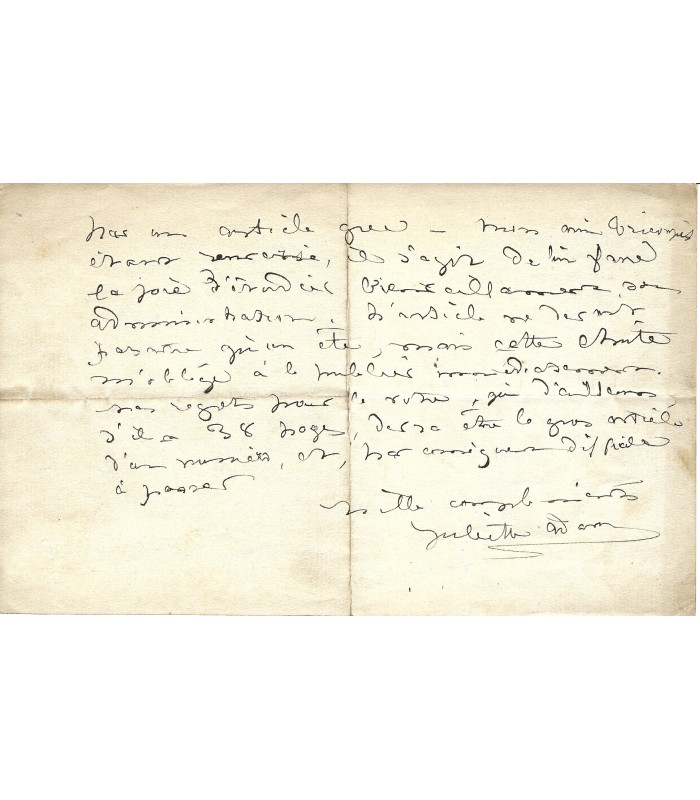 par un article que – mon ami Tricoupis
étant renversé, il s'agit de
la joie d'étudier bienveillamment son
administration. L'article ne devait
paraître qu'en été, mais cette chute
m'oblige à le publier immédiatement.
mes regrets pour le votre, qui d'ailleurs,
s'il a 38 pages, devra être le gros article
d'un numéro, et, par conséquent difficile
à passer
Mille compliments
Juliette Adam